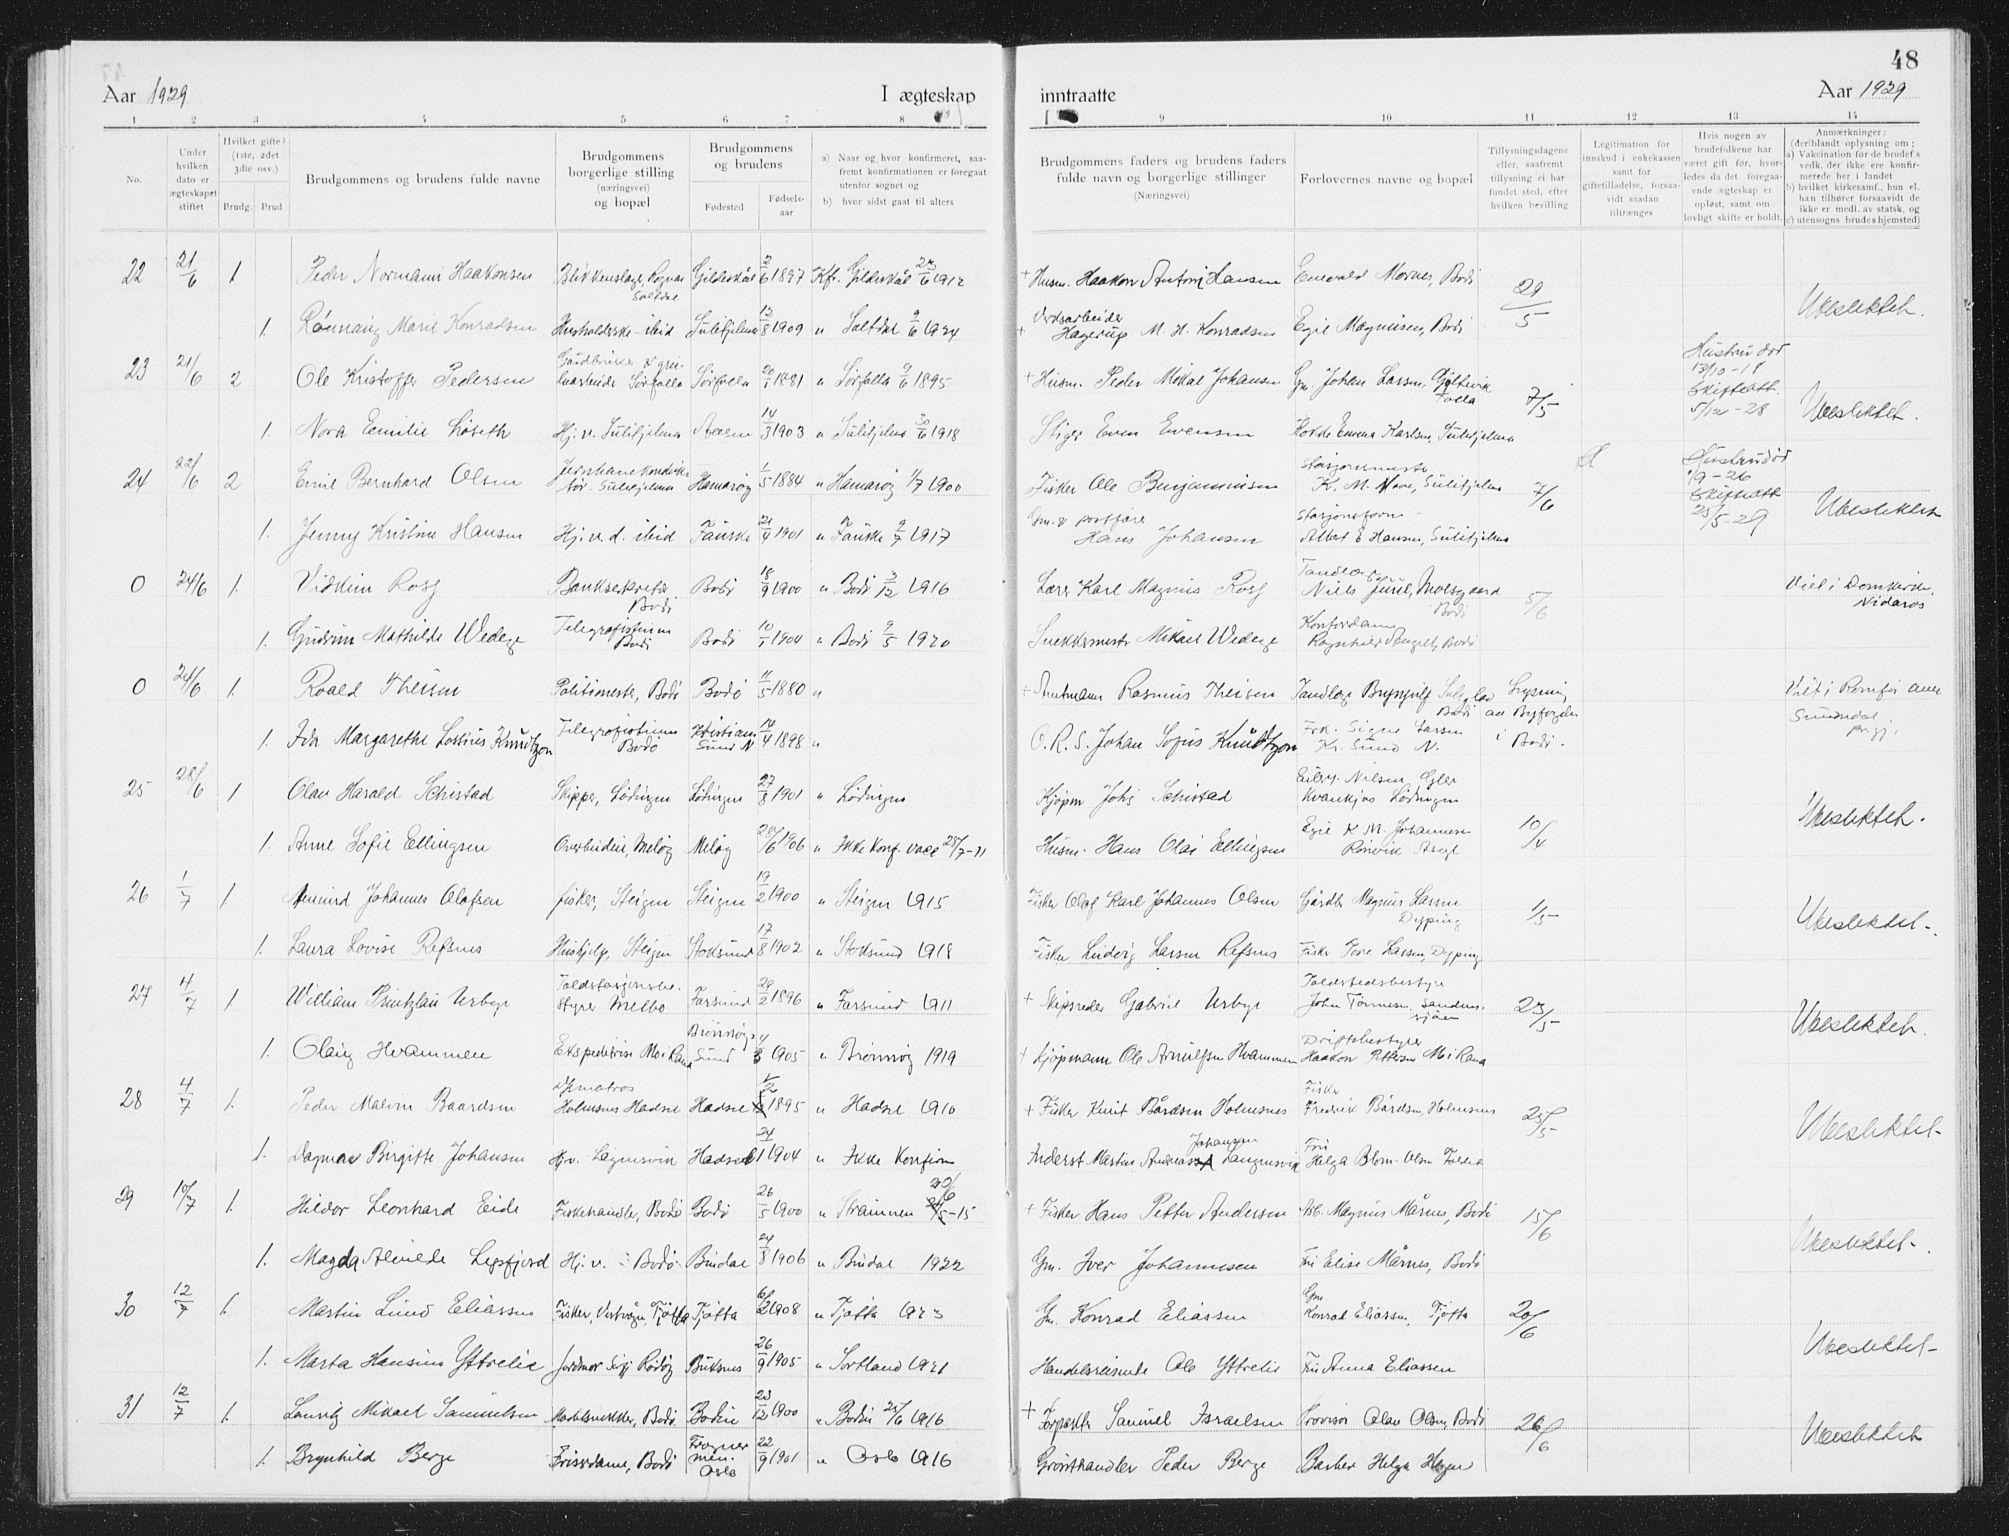 48
Aar 1929 I ægteskap inntraatte Aar 1929
1 2 3 4 5 6 7 8 9 10 11 12 13 14
No.
Under hvilken dato er ægteskapet stiftet
Hvilket gifte? (1ste, 2det 3die osv.)
Brudg. Brud
Brudgommens og brudens fulde navne
Brudgommens borgerlige stilling (næringsvei) og bopæl
Brudgommens og brudens
Fødested
Fødsels-aar
a) Naar og hvor konfirmeret, saafremt konfirmationen er foregaat utenfor sognet og
b) hvor sidst gaat til alters
Brudgommens faders og brudens faders fulde navn og borgerlige stillinger (Næringsvei)
Forlovernes navne og bopæl
Tillysningsdagene eller, saafremt tillysning ei har fundet sted, efter hvilken bevilling
Legitimation for innskud i enkekassen samt for giftetilladelse, forsaavidt saadan tiltrænges
Hvis nogen av brudefolkene har været gift før, hvorledes da det foregaaende ægteskap er opløst, samt om lovligt skifte er holdt.
Anmærkninger: (deriblandt oplysning om;
a) Vakcination for de brudef s vedk. der ikke ere konfirmerede her i landet
b) hvilket kirkesamf., hun el. han tilhører forsaavidt de ikke er medl. av statsk. og
c) utensogns brudes hjemsted)
22 21/6 1 Peder Normann Haakonsen Blikkenslager, Rognan Saltdal Gildeskål 2/6 1897 Kfr. Gildeskål 23/6 1912 + Husm. Haakon Antoni Hansen Enevald Mornes, Bodø 29/5
1. Rønnaug Marie Konradsen Husholderske - ibid Sulitjelma 13/8 1909 " Saltdal 9/6 1924 + Verksarbeider Hagerup M. H. Konradsen Egil Magnussen, Bodø Ubeslektet.
23 21/6 2 Ole Kristoffer Pedersen Gårdbruker & gruvearbeider Sørfolla Sørfolla 20/1 1881 " Sørfolla 9/6 1895 + Husm. Peder Mikal Johansen Gm. Johan Larsen, Folla 7/5 Hustru død 13/10-18 Skifteatt. 5/12-28 Ubeslektet.
1. Nora Emilie Løseth Hj. v. Sulitjelma 14/3 1903 " Sulitjelma 30/6 1918 Stiger Even Evensen Kokke Emma Karlsen, Sulitjelma
24 22/6 2 Emil Bernhard Olsen Jernbanekonduktør - Sulitjelma Hamarøy 1/5 1884 " Hamarøy 1/7 1900 Fisker Ole Benjaminsen Stasjonsmester K. M. Moe, Sulitjelma 7/6 Hustru død 1/9-26 Skifteatt 25/5-29 Ubeslektet
1. Jenny Kristine Hansen Hj. v. d. ibid Fauske 21/4 1901 " Fauske 9/7 1917 Gm. & postfører Hans Johansen Stasjonsform. Albert E Hansen, Sulitjelma
0 24/6 1. Vidkun Rosj Banksekretær Bodø Bodø 18/9 1900 " Bodø 3/12 1916 Lærer Karl Magnus Rosj Tandlæge Niels Juul, Bodø 5/6 Viet i Domkirke, Nidaros
1. Gudrun Mathilde Wedege Telegrafistinne Bodø Bodø 10/1 1904 " Bodø 9/5 1920 Snekkermester Mikael Wedege Kontordame Ragnhild Bodø
0 24/6 1. Roald Theisen Politimester, Bodø Bodø 11/5 1880 " + Amtmann Rasmus Theisen Tandlæge Brynjulf Bodø Lysning av Byfogden i Bodø. Viet i Romfo Sunndal
1. Ida Margarethe Lossius Knudtzon Telegrafistinne Bodø Kristiansund N 14/4 1898 " O.R.S. Johan Sofus Knudtzon Frk. Signe Larsen Kr. Sund N.
25 28/6 1 Olav Harald Schistad Skipper, Lødingen Lødingen 27/8 1901 " Lødingen Kjøpm Johs Schistad Nilsen Kvankjos Lødingen
1. Anne Sofie Ellingsen Meløy Meløy 28/6 1906 " Ikke konf. vacc 28/7-11 Husm. Hans Olai Ellingsen Egil K M. Johannesen Rønvik Asyl 10/4 Ubeslektet.
26 1/7 1. Johannes Olafsen fisker, Steigen Steigen 19/2 1900 " Steigen 1915 Fisker Olaf Karl Johannes Olsen Gårdbr Magnus Larsen Dypping 1/5
1. Laura Lovise Refsnes Hushjelp, Steigen Stoksund 17/8 1902 " Stoksund 1918 Fisker Ludvig Larsen Refsnes Fisker Tore Larsen, Dypping Ubeslektet.
27 4/7 1 William Printzlau Urbye Toldstasjonsbestyrer Melbo Farsund 29/2 1896 " Farsund 1911 + Skipsreder Gabriel Urbye Toldstedsbestyrer John Tønnesen Sandnessjøen 23/5 Ubeslektet.
1. Olaug Hvammen Ekspeditrise Mo i Rana Brønnøysund 4/3 1905 " Brønnøy 1919 + Kjøpmann Ole Arnulfsen Hvammen Driftsbestyrer Haakon Pettersen Mo i Rana
28 4/7 1. Peder Malvin Baardsen Holmsnes Hadsel Hadsel 1/2 1895 " Hadsel 1910 + Fisker Knut Bårdsen Holmsnes Fisker Fredrik Bårdsen, Holmsnes 25/5 Ubeslektet
1. Dagmar Birgitte Johansen Hj. v. Langnesvik Hadsel 24/1 1904 " Ikke konfirm Martin Andreas Johansen Langnesvik Fru Helga Blom-Olsen
29 10/7 1. Hildor Leonhard Eide Fiskehandler, Bodø Bodø 26/5 1900 " Straumen 30/6-15 + Fisker Hans Petter Andersen Arb. Magnus Mårnes, Bodø 15/6
1. Magda Alvilde Lepsfjord Hj. v. : Bodø Bindal 24/8 1906 " Bindal 1922 Gm. Iver Johannesen Fru Elise Mårnes, Bodø Ubeslektet.
30 12/7 1. Martin Lund Eliassen Fisker, Tjøtta Tjøtta 6/2 1908 " Tjøtta 1923 Gm. Konrad Eliassen Gm Konrad Eliassen, Tjøtta 20/6
1. Marta Hansine Yttrelie Jordmor Rødøy Buksnes 26/9 1905 " Sortland 1921 Handelsreisende Ole Yttrelie Fru Anna Eliassen Ubeslektet
31 12/7 1. Lauritz Mikael Samuelsen Møbelsnekker, Bodø Bodin 23/12 1900 " Bodin 25/6 1916 + Forpakter Samuel Israelsen Provisor Olav Olsen, Bodø 26/6
1. Brynhild Berge Frisørdame, Bodø Frognermen. Oslo 22/9 1901 " Oslo 1916 Grønthandler Peder Berge Barber Helge Hagen Ubeslektet